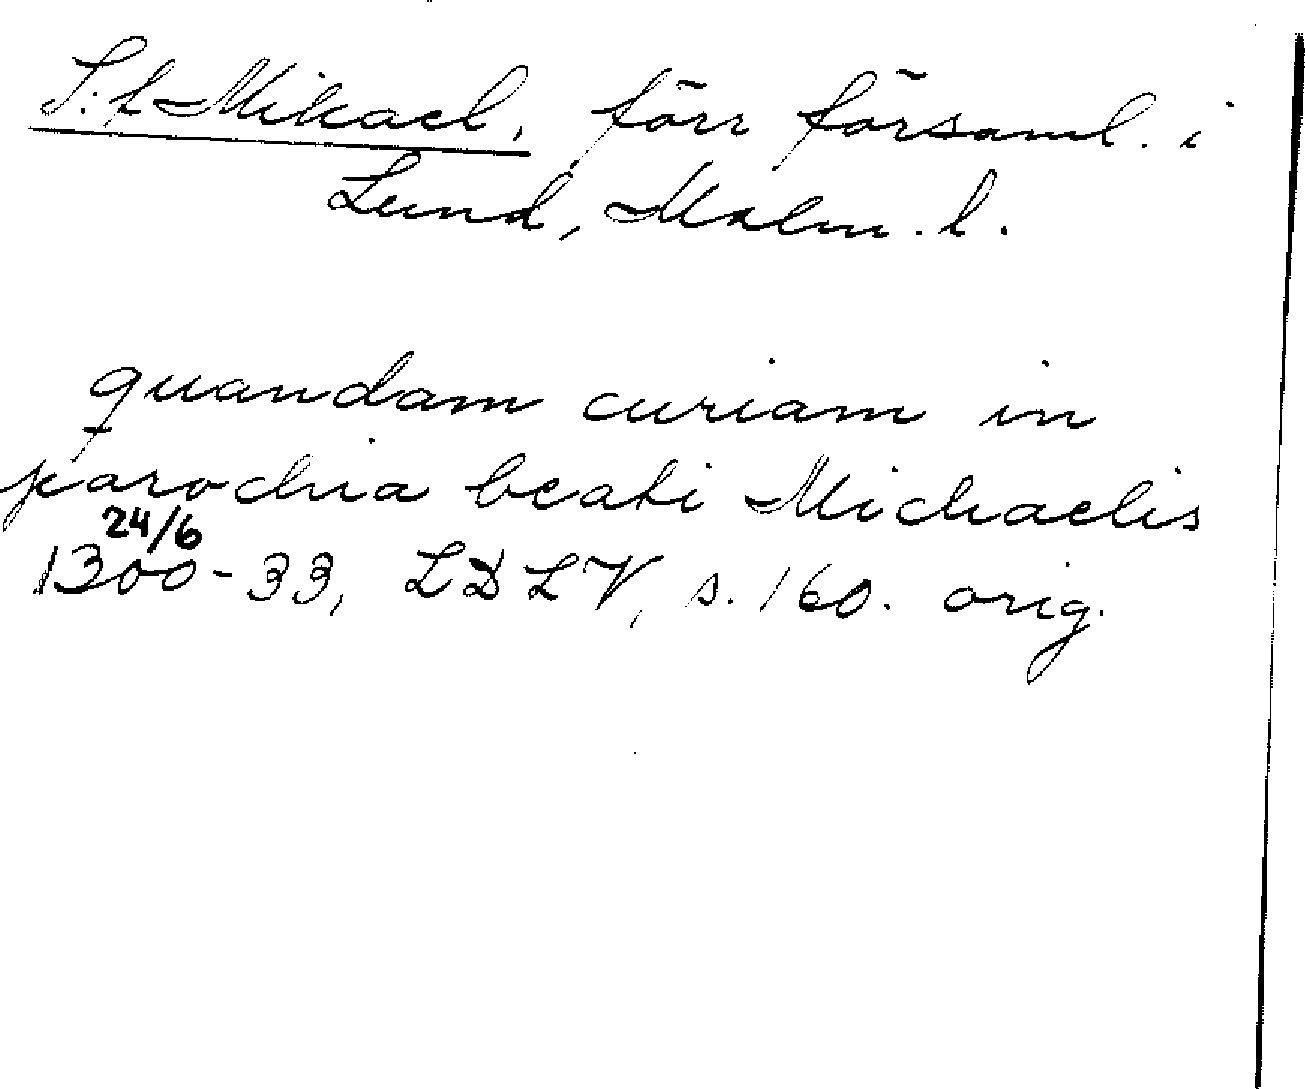 S:t Mikael, förr församl. i
Lund, Malm. l.
quandam curiam in
parochia beati Michaelis
24/6
1300-33, LDLV, s. 160. orig.